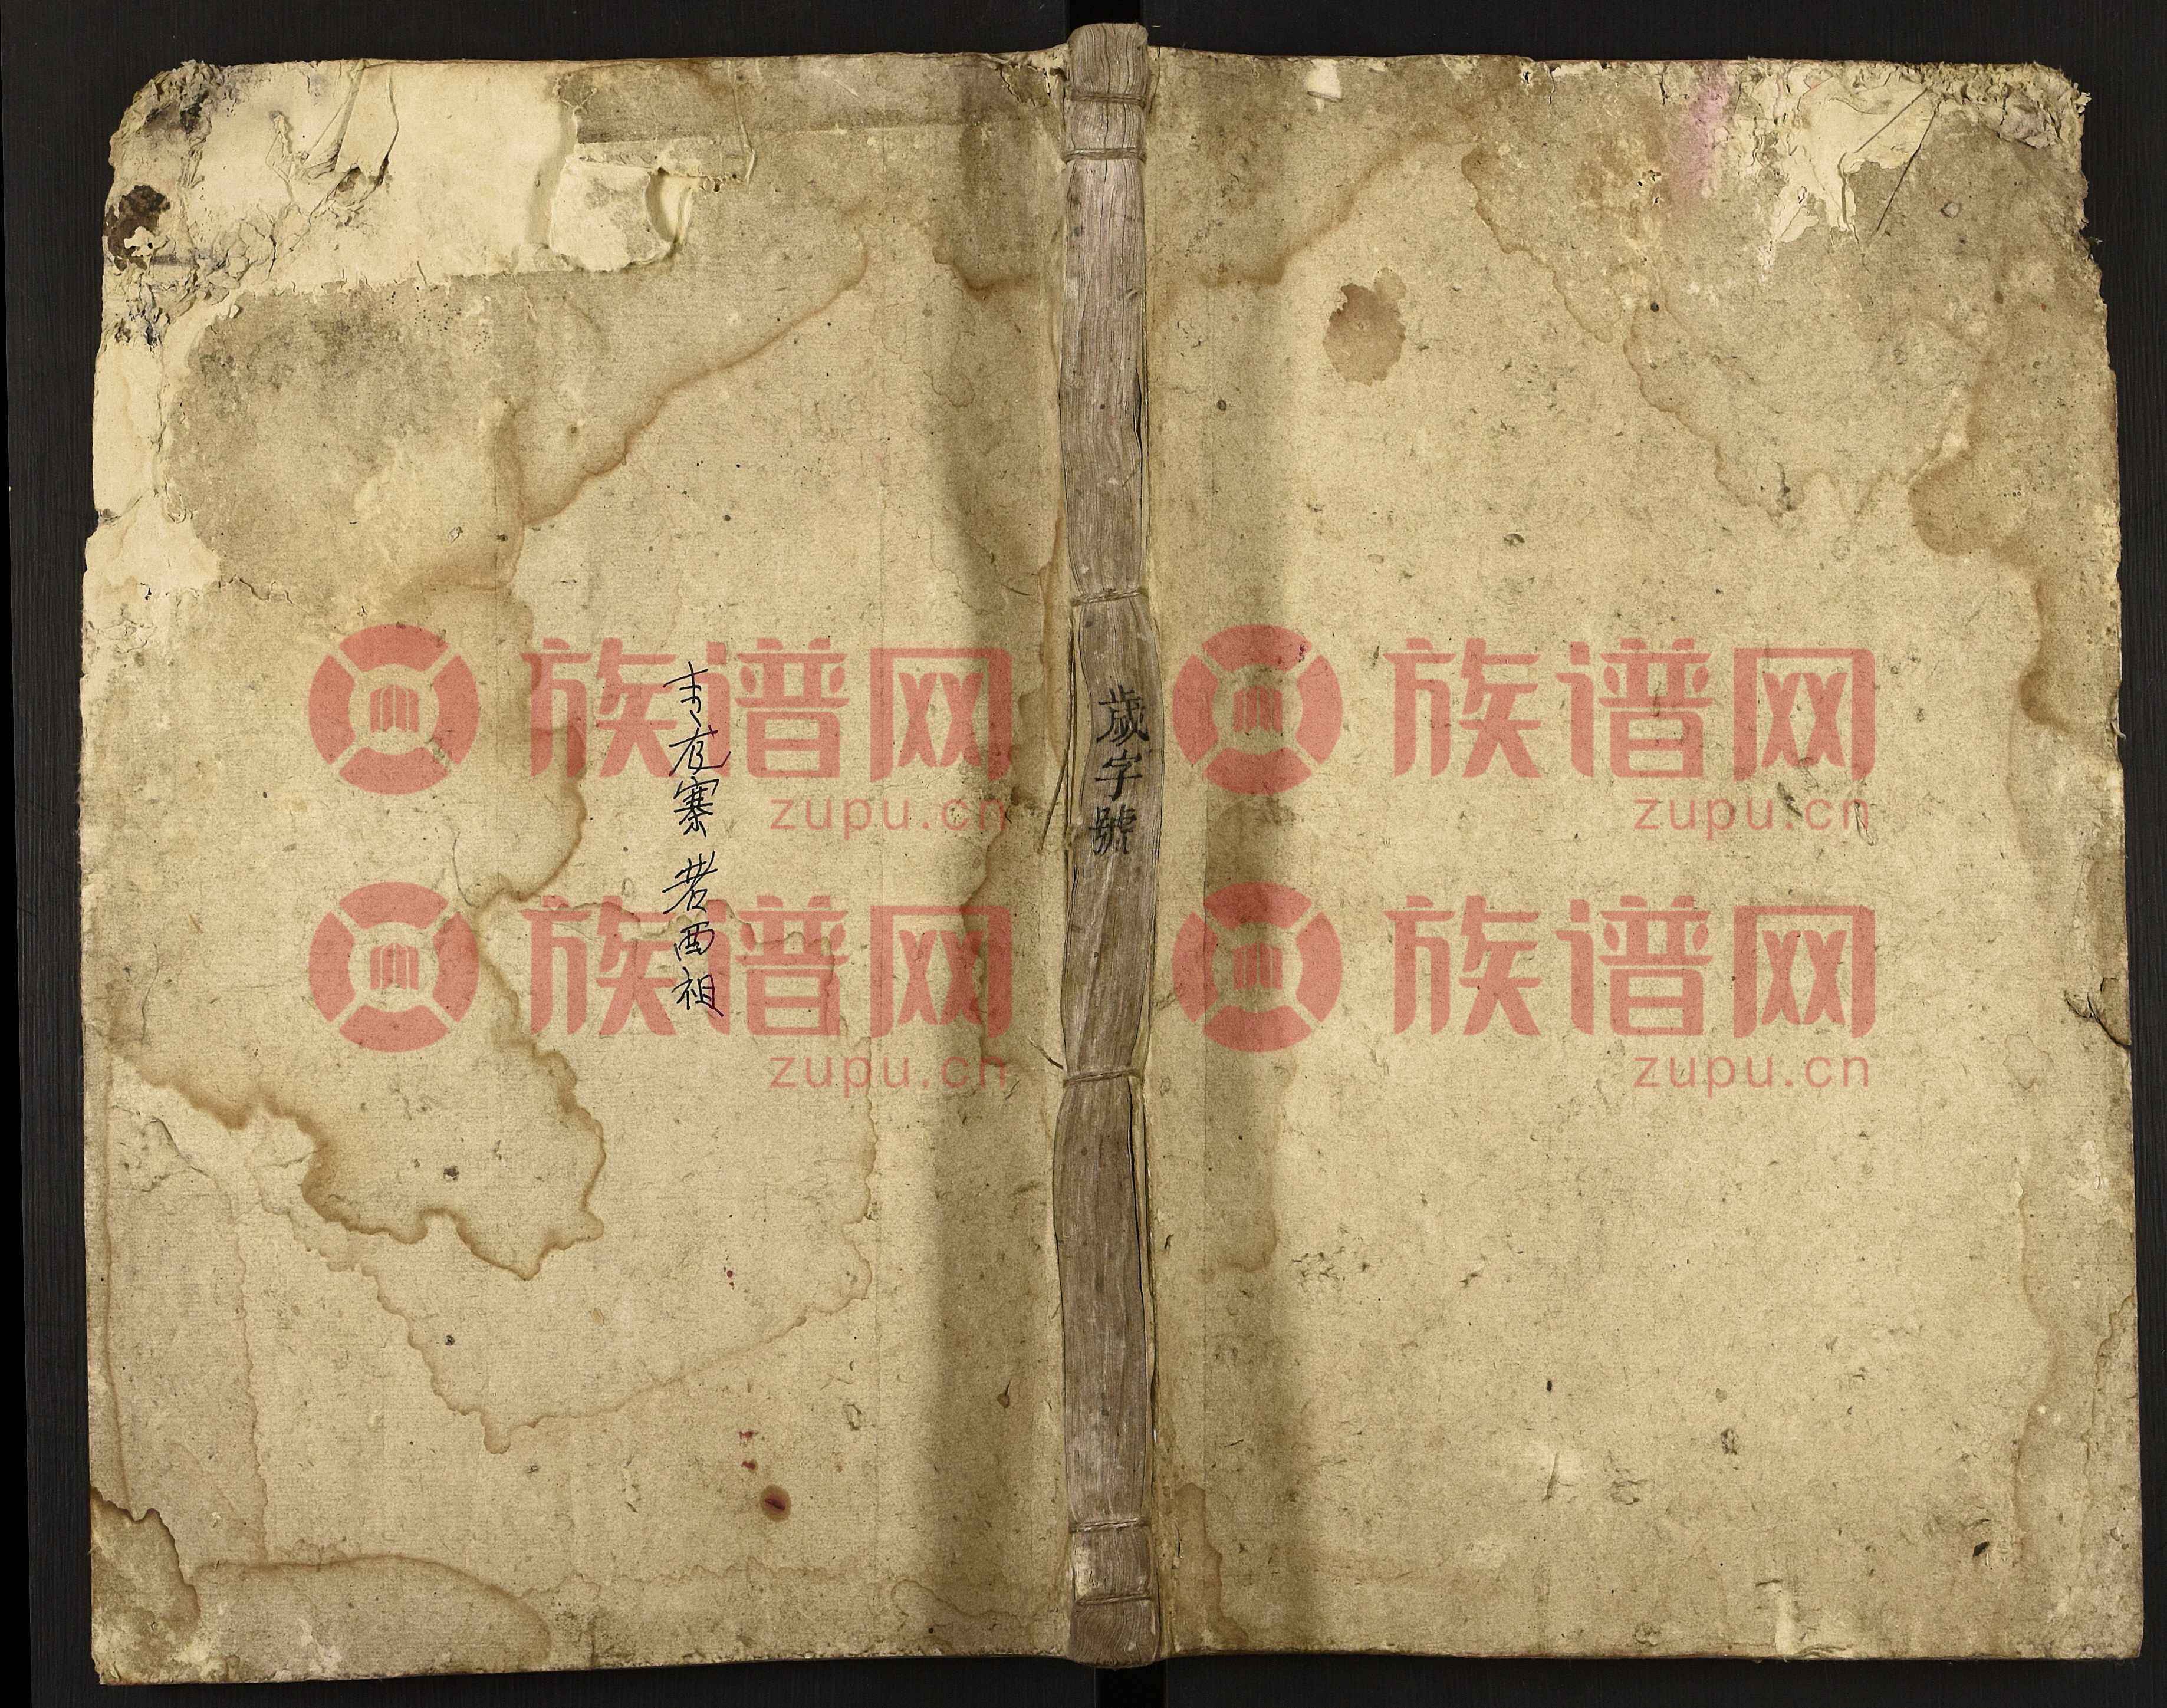 歲字號
寨
西祖
族谱网
zupu.cn
族谱网
zupu.cn
族谱网
zupu.cn
族谱网
zupu.cn